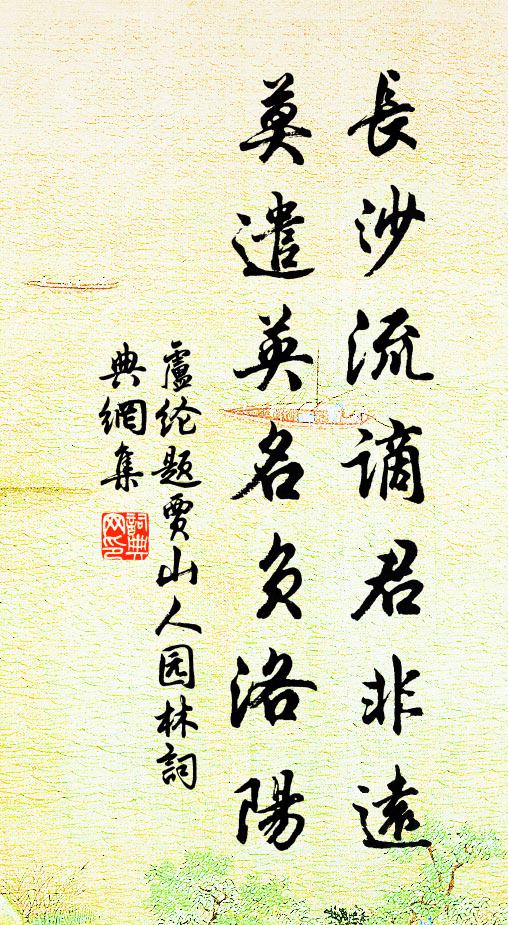 長沙流謫君非遠
莫遣英名負洛陽
盧纶题賈山人园林詞
典網集
詞典
网印